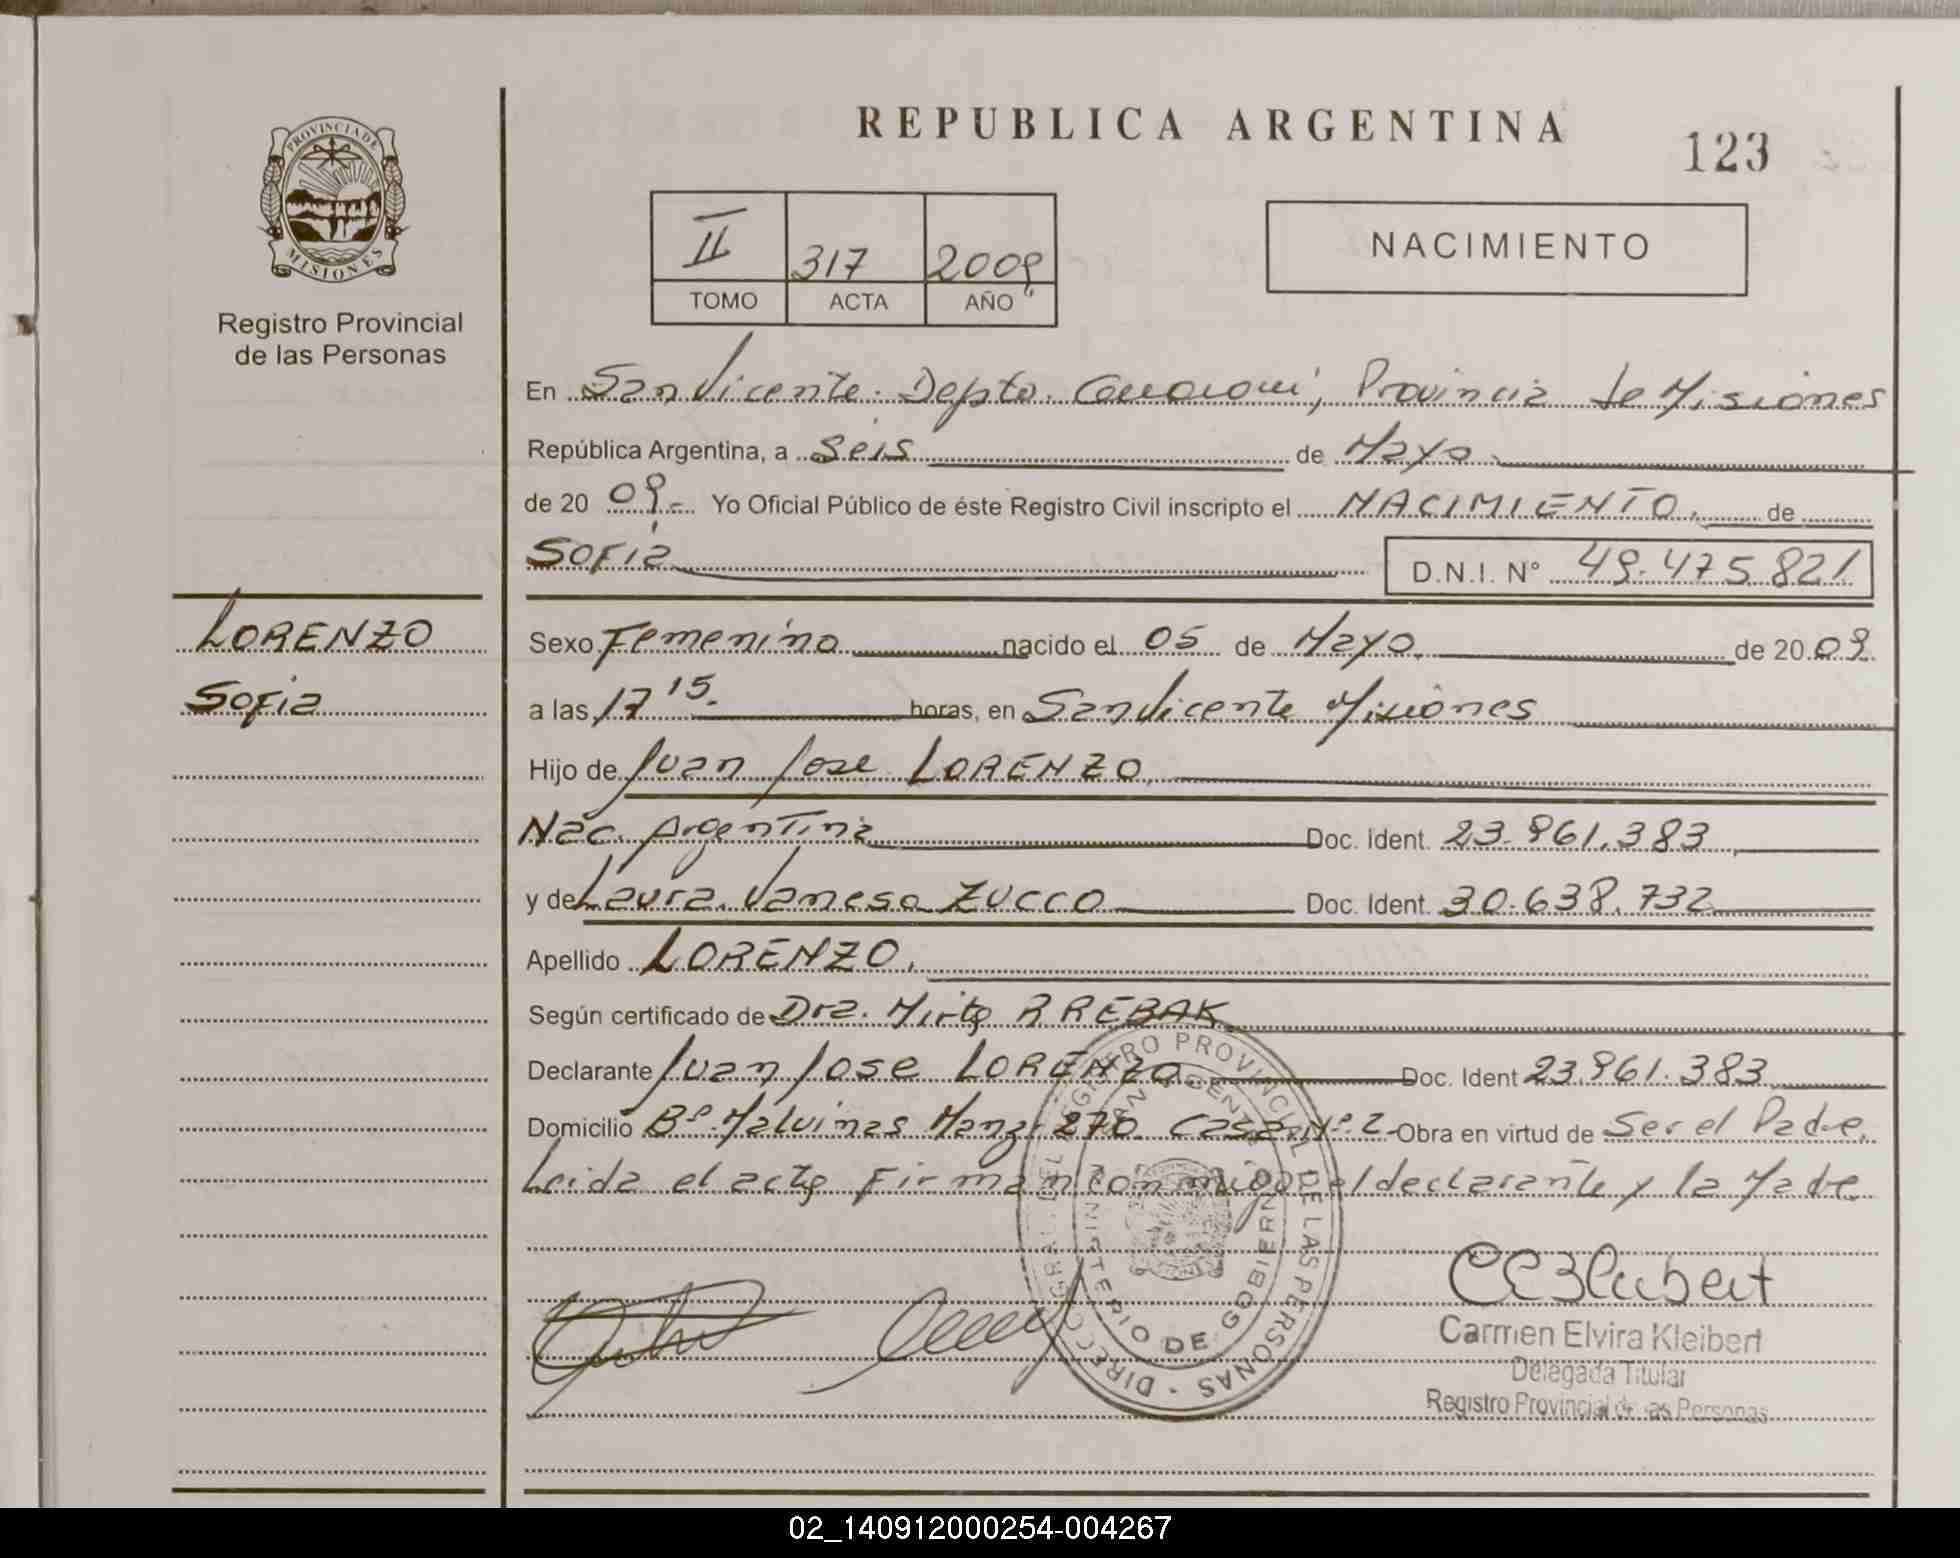 REPUBLICA ARGENTINA
123
PROVINCIA DE
MISIONES
Registro Provincial
de las Personas
II 317 2009
TOMO ACTA AÑO
NACIMIENTO
En San Vicente. Depto. Guaraní, Provincia de Misiones
República Argentina, a Seis de Mayo
de 20 09.- Yo Oficial Público de éste Registro Civil inscripto el NACIMIENTO. de
Sofia D.N.I. Nº 49.475.821
LORENZO
Sofia
Sexo Femenino nacido el 05 de Mayo de 20 09
a las 17 15. horas, en San Vicente Misiones
Hijo de Juan Jose LORENZO
Nac. Argentina Doc. Ident. 23.961.383
y de Laura Vanesa ZUCCO Doc. Ident. 30.638.732
Apellido LORENZO.
Según certificado de Dra. Mirta R REBAK
Declarante Juan Jose LORENZO Doc. Ident 23.961.383
Domicilio Bº Malvinas Manz 270 Casa Nº 2- Obra en virtud de Ser el Padre.
Leida el acta Firman conmigo el declarante y la Madre
DIRECC GRAL DEL REGISTRO PROVINCIAL DE LAS PERSONAS
MINISTERIO DE GOBIERN
Carmen Elvira Kleibert
Delegada Titular
Registro Provincial de las Personas
02_140912000254-004267